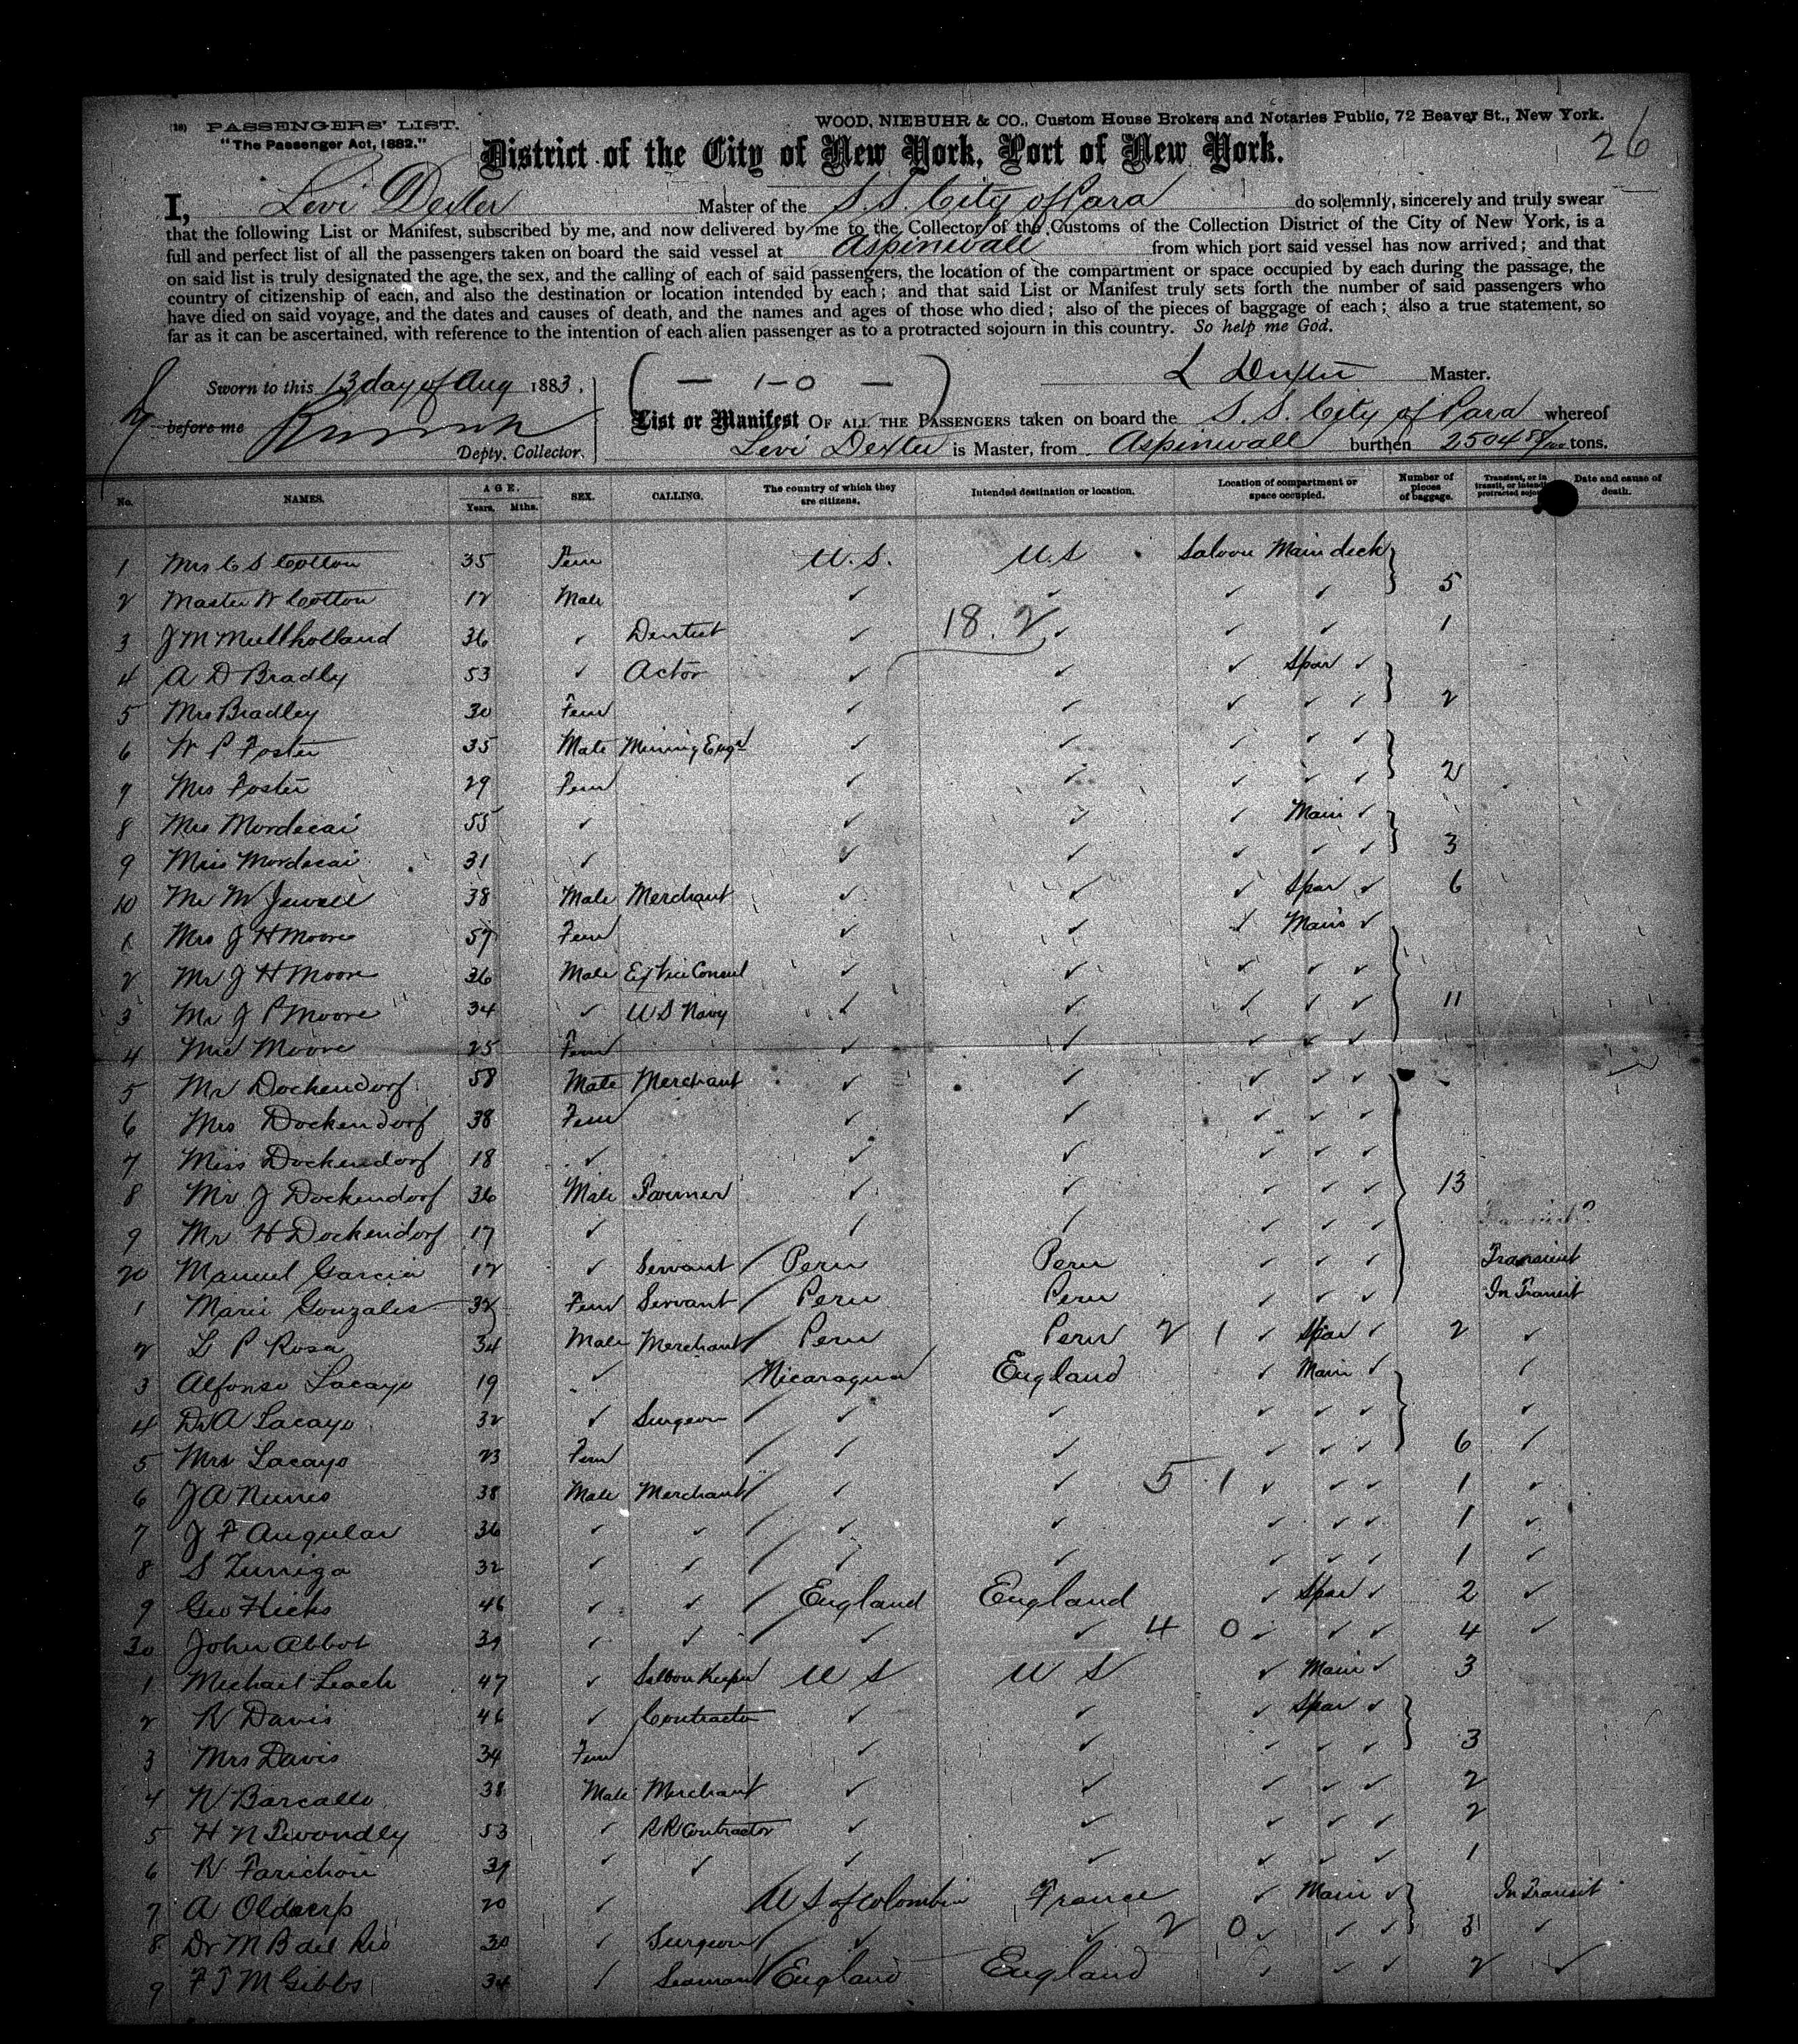 (18) PASSENGERS' LIST. WOOD, NIEBUHR & CO., Custom House Brokers and Notaries Public, 72 Beaver St., New York.
"The Passenger Act, 1882."
District of the City of New York, Port of New York. 26
I, Levi Dexter Master of the S.S. City of Para do solemnly, sincerely and truly swear
that the following List or Manifest, subscribed by me, and now delivered by me to the Collector of the Customs of the Collection District of the City of New York, is a
full and perfect list of all the passengers taken on board the said vessel at Aspinwall from which port said vessel has now arrived; and that
on said list is truly designated the age, the sex, and the calling of each of said passengers, the location of the compartment or space occupied by each during the passage, the
country of citizenship of each, and also the destination or location intended by each; and that said List or Manifest truly sets forth the number of said passengers who
have died on said voyage, and the dates and causes of death, and the names and ages of those who died; also of the pieces of baggage of each; also a true statement, so
far as it can be ascertained, with reference to the intention of each alien passenger as to a protracted sojourn in this country. So help me God.
Sworn to this 13 day of Aug 1883. ( — 1-0 — ) L Dexter Master.
before me List or Manifest OF ALL THE PASSENGERS taken on board the S. S. City of Para whereof
Depty. Collector. Levi Dexter is Master, from Aspinwall burthen 2504 tons.
No. NAMES. AGE. Years. Mths. SEX. CALLING. The country of which they are citizens. Intended destination or location. Location of compartment or space occupied. Number of pieces of baggage. Transient, or in transit, or intending protracted sojourn Date and cause of death.
1 Mrs C S Cotton 35 Fem U.S. U.S Saloon Main deck
2 Master W Cotton 12 Male ✓ ✓ ✓ ✓ 5
3 J M Mullholland 36 ✓ Dentist ✓ 18.2 ✓ ✓ ✓ 1
4 A D Bradly 53 ✓ Actor ✓ ✓ ✓ Spar ✓
5 Mrs Bradley 30 Fem ✓ ✓ ✓ ✓ ✓ 2
6 W P Foster 35 Male Mining Engr ✓ ✓ ✓ ✓ ✓
7 Mrs Foster 29 Fem ✓ ✓ ✓ ✓ ✓ 2
8 Mrs Mordecai 55 ✓ ✓ ✓ ✓ Main ✓
9 Miss Mordecai 31 ✓ ✓ ✓ ✓ ✓ ✓ 3
10 Mr M Jewell 38 Male Merchant ✓ ✓ ✓ Spar ✓ 6
1 Mrs J H Moore 57 Fem ✓ ✓ ✓ Main ✓
2 Mr J H Moore 36 Male Ex Vice Consul ✓ ✓ ✓ ✓ ✓
3 Mr J P Moore 34 ✓ U S Navy ✓ ✓ ✓ ✓ ✓ 11
4 Mrs Moore 25 Fem ✓ ✓ ✓ ✓ ✓
5 Mr Dockendorf 58 Male Merchant ✓ ✓ ✓ ✓ ✓
6 Mrs Dockendorf 38 Fem ✓ ✓ ✓ ✓ ✓
7 Miss Dockendorf 18 ✓ ✓ ✓ ✓ ✓ ✓
8 Mr J Dockendorf 36 Male Farmer ✓ ✓ ✓ ✓ ✓ 13
9 Mr H Dockendorf 17 ✓ ✓ ✓ ✓ ✓ ✓
20 Manuel Garcia 12 ✓ Servant Peru Peru ✓ ✓ ✓ Transient
1 Marie Gonzales 32 Fem Servant Peru Peru ✓ ✓ ✓ In Transit
2 L P Rosa 34 Male Merchant Peru Peru 2 1 ✓ Spar ✓ 2 ✓
3 Alfonso Lacayo 19 ✓ Nicaragua England ✓ Main ✓ ✓
4 Dr A Lacayo 32 ✓ Surgeon ✓ ✓ ✓ ✓ ✓ ✓
5 Mrs Lacayo 23 Fem ✓ ✓ ✓ ✓ ✓ 6 ✓
6 J A Nunes 38 Male Merchant ✓ ✓ 5 1 ✓ ✓ ✓ 1 ✓
7 J F Angular 36 ✓ ✓ ✓ ✓ ✓ ✓ ✓ 1 ✓
8 S Zuniga 32 ✓ ✓ ✓ ✓ ✓ ✓ ✓ 1 ✓
9 Geo Hicks 46 ✓ ✓ England England ✓ Spar ✓ 2 ✓
30 John Abbot 39 ✓ ✓ ✓ ✓ 4 0 ✓ ✓ ✓ 4 ✓
1 Michael Leach 47 ✓ Saloon Keeper U S U S ✓ Main ✓ 3
2 R Davis 46 ✓ Contractor ✓ ✓ ✓ Spar ✓
3 Mrs Davis 34 Fem ✓ ✓ ✓ ✓ ✓ 3
4 N Barcallo 38 Male Merchant ✓ ✓ ✓ ✓ ✓ 2
5 H N 53 ✓ R R Contractor ✓ ✓ ✓ ✓ ✓ 2
6 R Farichon 39 ✓ ✓ ✓ ✓ ✓ ✓ ✓ 1
7 A 20 ✓ U S of Colombia France ✓ Main ✓ In Transit
8 Dr M B del Rio 30 ✓ Surgeon ✓ ✓ 2 0 ✓ ✓ ✓ 3 ✓
9 F T M Gibbs 34 ✓ Seaman England England ✓ ✓ ✓ 2 ✓